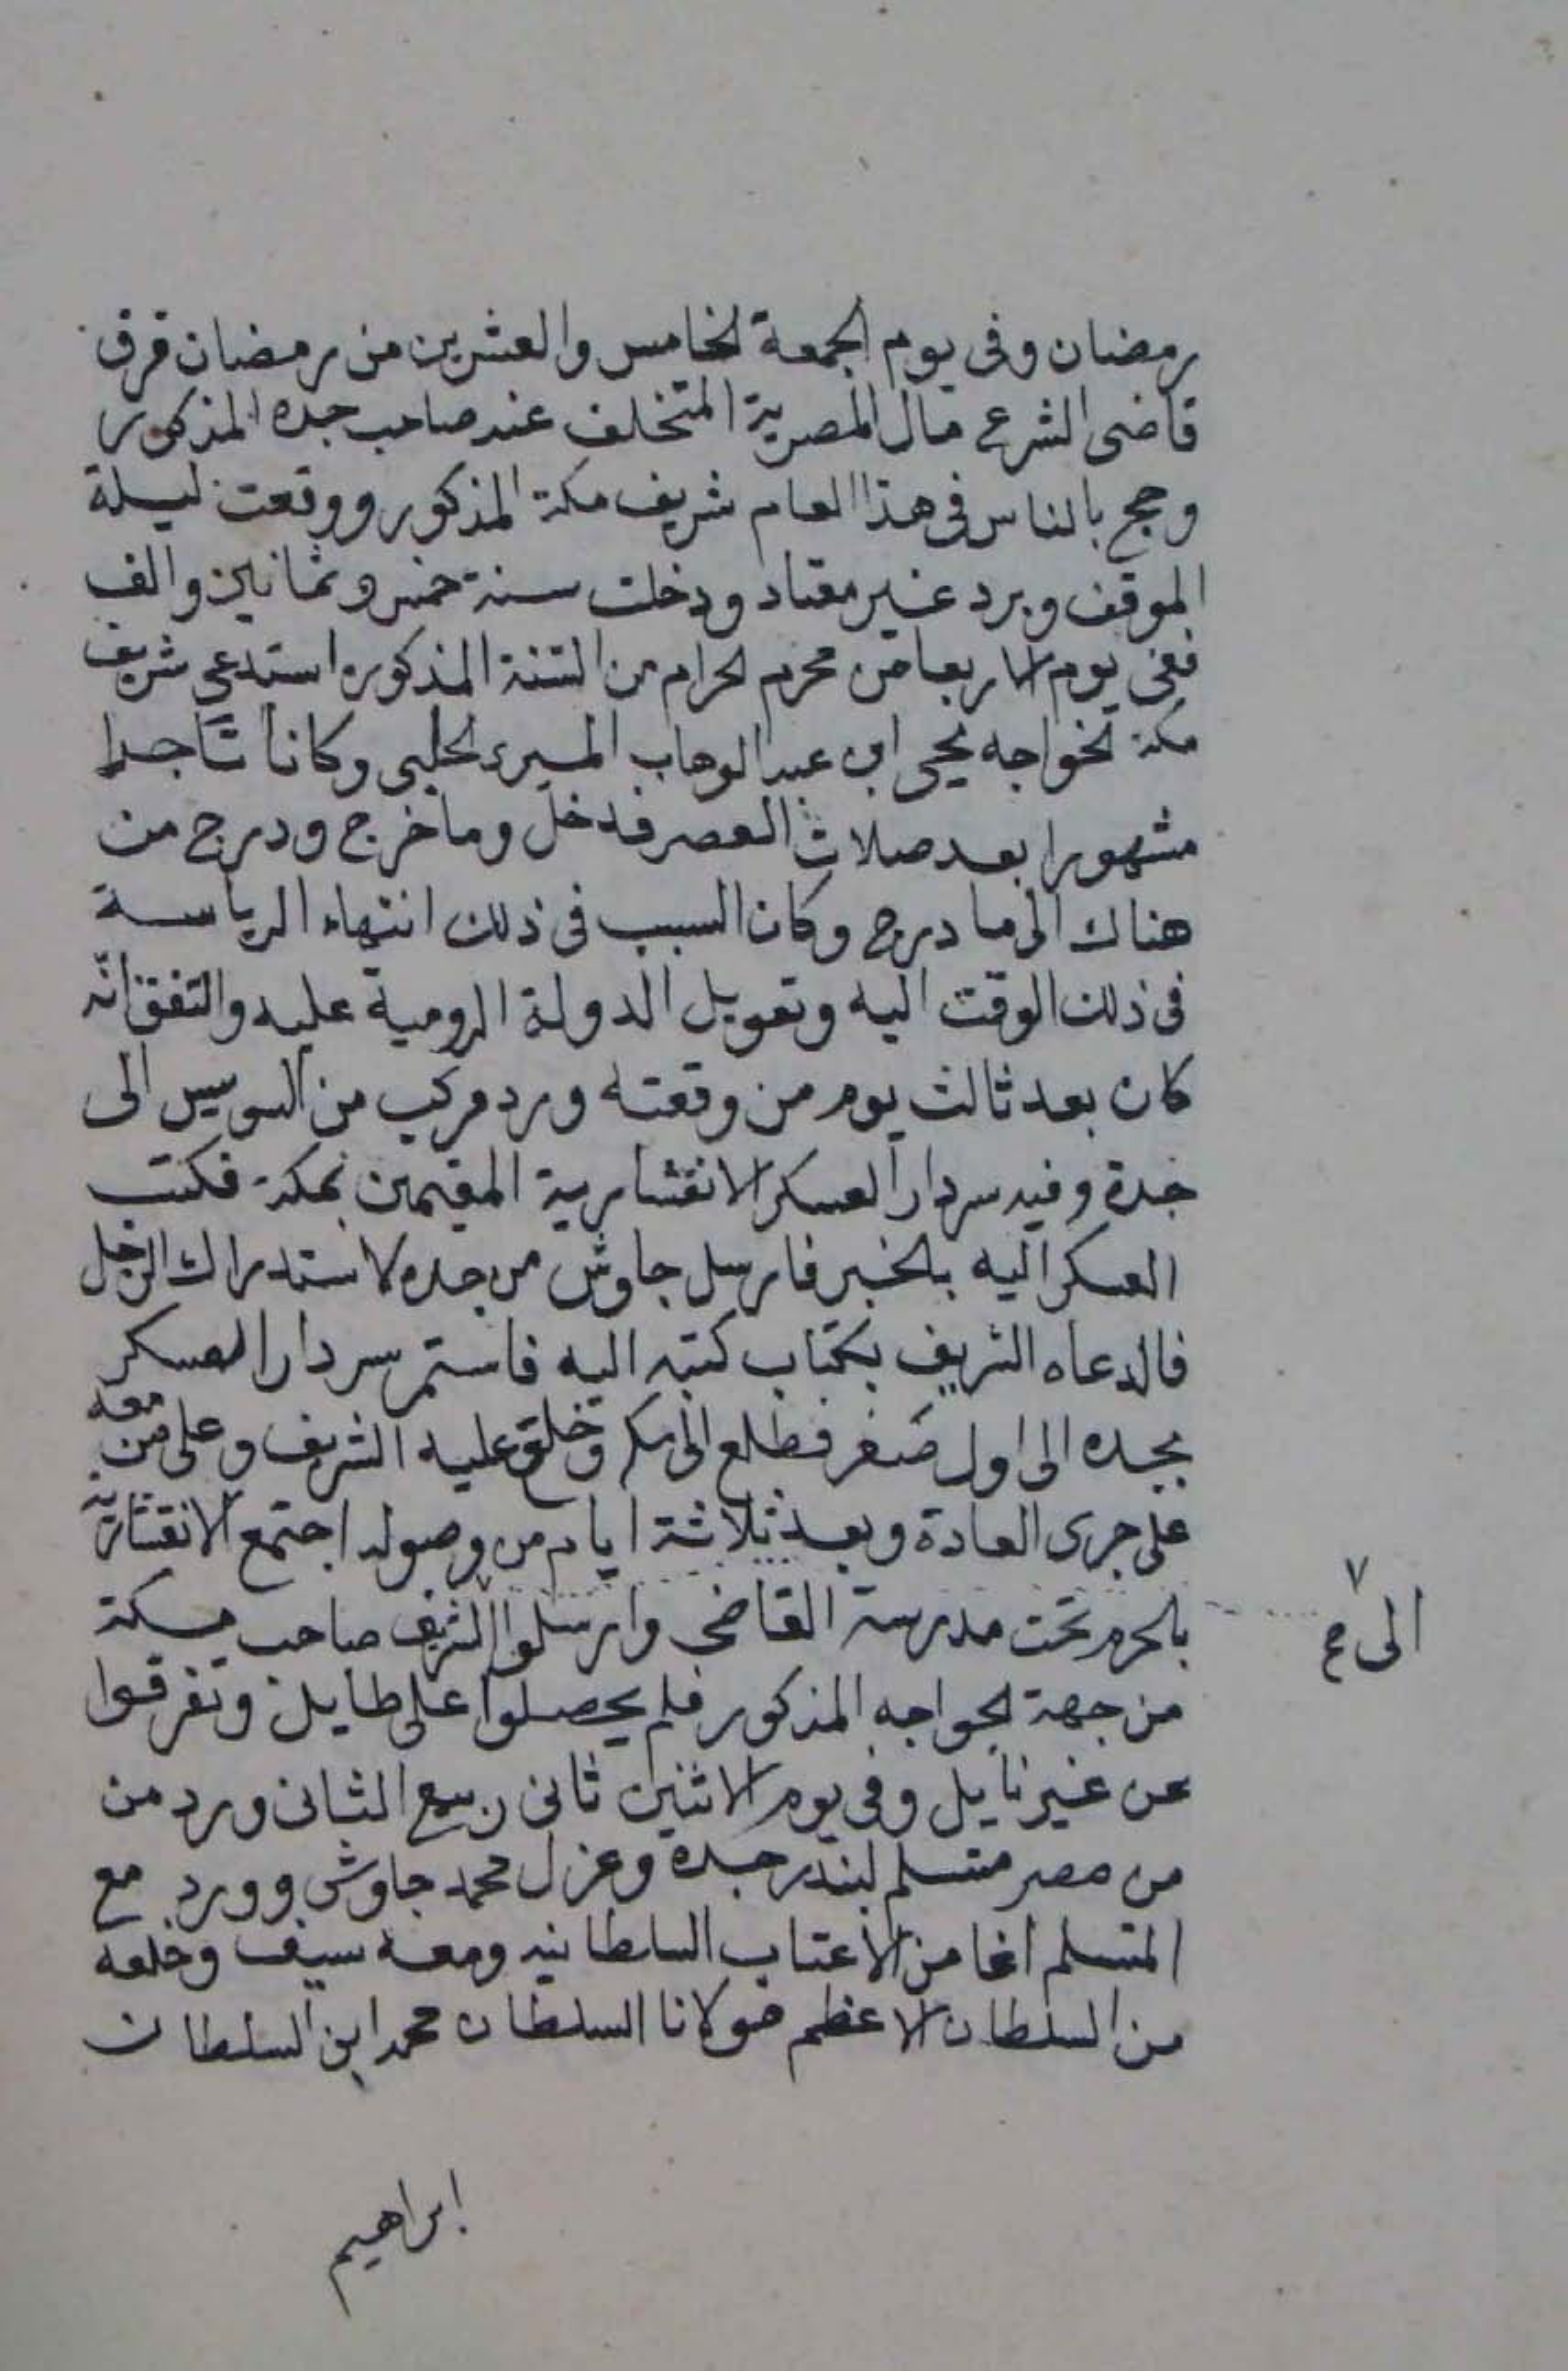 رمضان وفى يوم الجمعة الخامس والعشرين من رمضان فرق
قاضى الشرع مال المصرية المتخلف عند صاحب جده المذكور
وحج بالناس فى هذا العام شريف مكة المذكور ووقعت ليلة
الموقف وبرد غير معتاد ودخلت سنة خمس وثمانين والف
ففى يوم الاربعا من محرم الحرام من السنة المذكوره استدعى شريف
مكة الخواجه يحيى ابن عبد الوهاب الحلبى وكانا تاجرا
مشهورا بعد صلاة العصر فدخل وما خرج ودرج من
هناك الى ما درج وكان السبب فى ذلك انتهاء الرياسة
فى ذلك الوقت اليه وتعويل الدولة الرومية عليه والتفق انه
كان بعد ثالث يوم من وقعته ورد مركب من السويس الى
جدة وفيه سردار العسكر الانقشارية المقيمين بمكة فكتب
العسكر اليه بالخبر فارسل جاوش من جده لاستدراك الرجل
فالدعاه الشريف بكتاب كتبه اليه فاستمر سردار العسكر
بجده الى اول صفر فطلع الى مكه وخلع عليه الشريف وعلى من معه
على جرى العادة وبعد ثلاثة ايام من وصوله اجتمع الانقشارية
بالحرم تحت مدرسة القاضى وارسلوا الشريف صاحب مكة
الى
من جهة الخواجه المذكور فلم يحصلوا على طايل وتفرقوا
عن غير نايل وفى يوم الاثنين ثانى ربيع الثانى ورد من
من مصر متسلم لبندر جدة وعزل محمد جاوش وورد مع
المتسلم اغا من الاعتاب السلطانيه ومعه سيف وخلعه
من السلطان الاعظم مولانا السلطان محمد ابن السلطان
ابراهيم